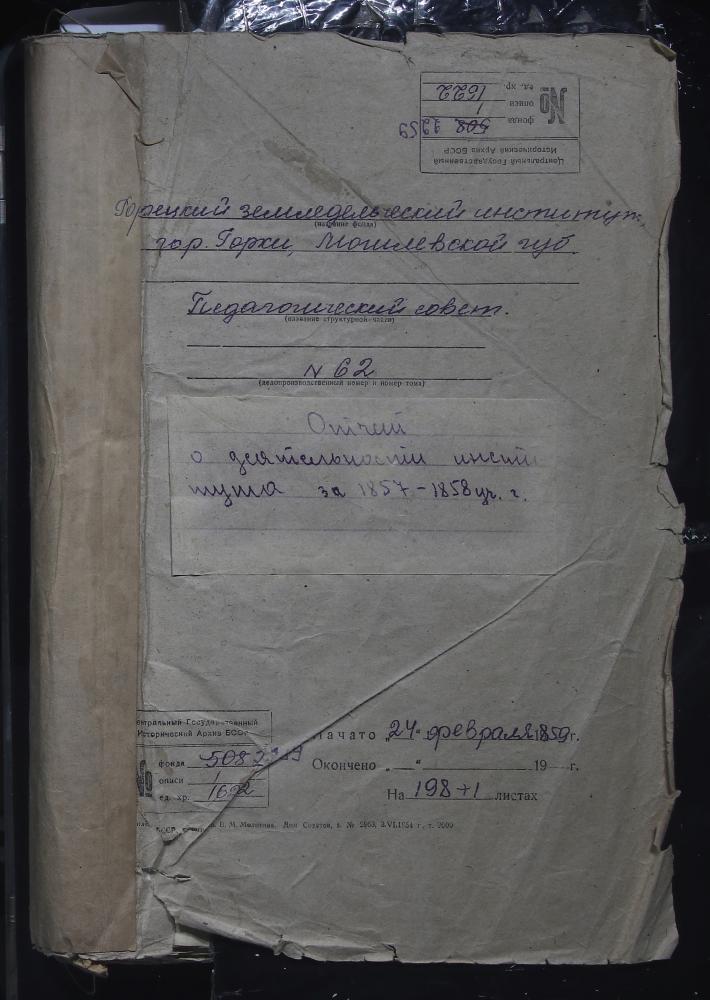 Центральный Государственный
Исторический Архив БССР
№
фонда 508 2259
описи 1
ед. хр. 1622
Горецкий земледельческий институт,
(название фонда)
гор. Горки, Могилевской губ.
Педагогический совет.
(название структурной части)
N 62
(делопроизводственный номер и номер тома)
Отчет
о деятельности инсти
тута за 1857-1858 уч. г.
ентральный Государственный
Исторический Архив БССР
№
фонда 508 2259
описи 1
ед. хр. 1622
Начато „24" февраля 1859 г.
Окончено „ " 19 г.
На 198+1 листах
БССР, Дом Советов, з. № 2863, 3.VI.1954 г., т. 2000